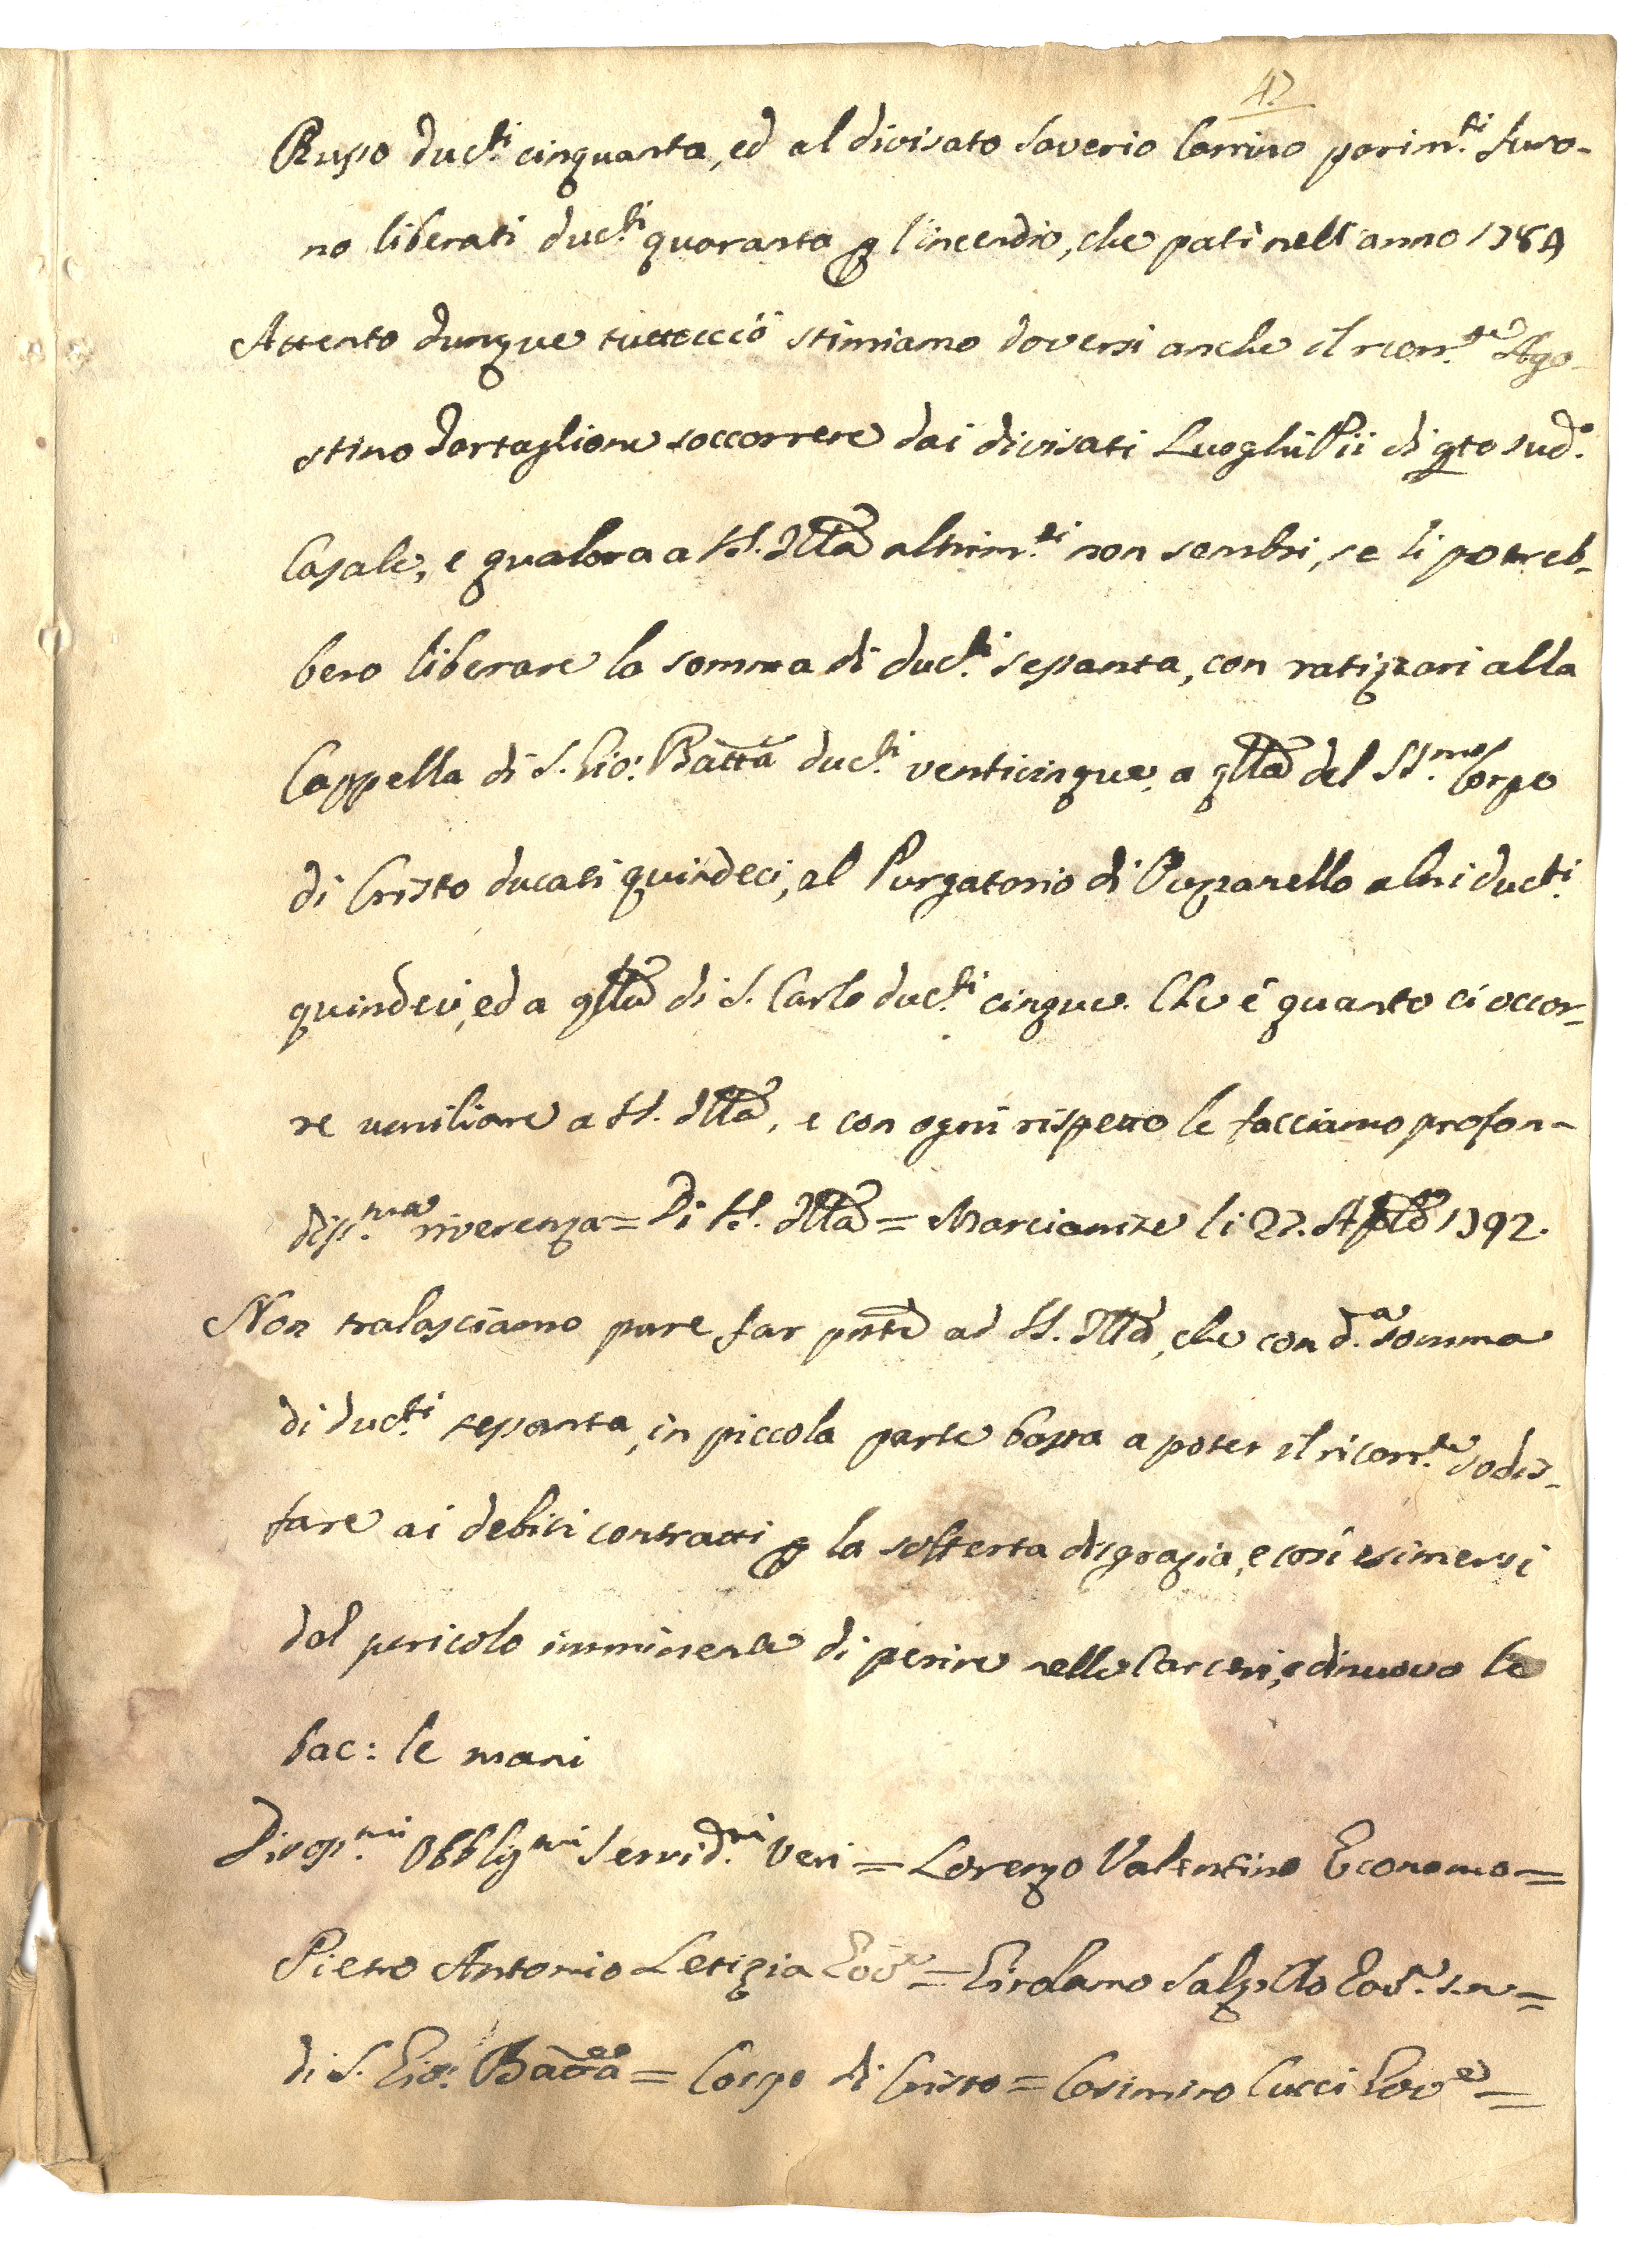 42
Russo duc.ti cinquanta, ed al divisato Saverio Carrino parim.ti furo-
no liberati duc.ti quaranta p l'incendio, che patì nell'anno 1784
Attento dunque tuttocciò stimiamo doversi anche il ricorr.te Ago-
stino Tartaglione soccorrere dai divisati Luoghi Pii di qto sud.o
Casale, e qualora a V.S. Illma altrim.ti non sembri, se li potreb-
bero liberare la somma di duc.ti sessanta, con ratizzari alla
Cappella di S. Gio: Batta duc.ti venticinque, a qlla del SS.mo Corpo
di Cristo ducati quindeci, al Purgatorio di Puzzanello altri duc.ti
quindeci, ed a qlla di S. Carlo duc.ti cinque. Che è quanto ci occor-
re umiliare a V.S. Illma, e con ogni rispetto le facciamo profon-
diss.ma riverenza = Di V.S. Illma = Marcianise li 27. Aple 1792.
Non tralasciamo pure far pnte ad V.S. Illma, che con d.a somma
di duc.ti sessanta, in piccola parte bassa a poter il ricorr.te sodis-
fare ai debiti contratti p la sofferta disgrazia, e così esimersi
dal pericolo imminente di perire nelle Carceri, e di nuovo le
bac: le mani
Divot.mi Obblig.mi Servid.ri Veri = Lorenzo Valentino Economo =
Pietro Antonio Letizia Gov.e = Girolamo Salzillo Gov.e s.n. =
di S. Gio: Batta = Corpo di Cristo = Cosimino Cucci Gov.e =